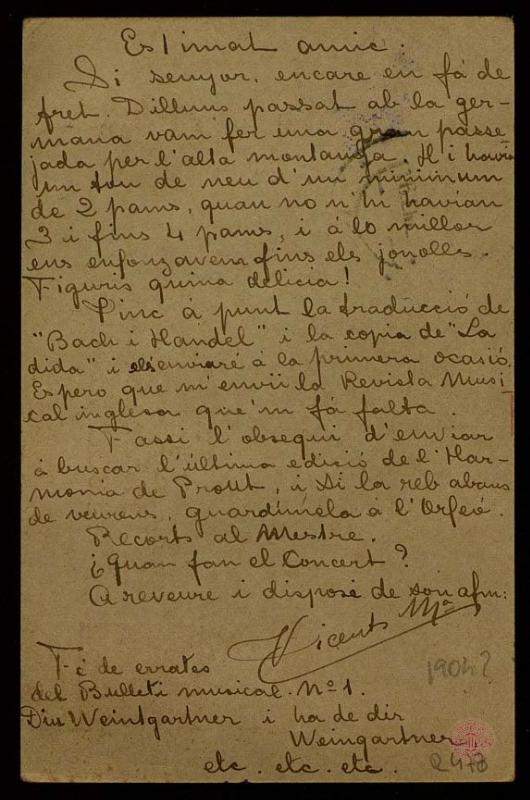 Estimat amic:
Si senyor, encare en fá de
fret. Dilluns passat ab la ger-
mana vam fer una gran passe
jada per l'alta montanya. H'i havia
un tou de neu d'un minimum
de 2 pams, quan no n'hi havian
3 i fins 4 pams, i á lo millor
ens enfonzavem fins els jonolls.
Figuris quina delicia!
Tinc á punt la traducció de
"Bach i Handel" i la copia de "La
dida" i els enviaré á la primera ocasió.
Espero que m'envii la Revista Musi
cal inglesa que'm fá falta.
Fassi l'obsequi d'enviar
á buscar l'última edició de l'Har-
monia de Prout, i si la reb abans
de veurens, guardimela á l'Orfeó.
Recorts al Mestre.
¿Quan fan el Concert?
A reveure i disposi de son afm:
Vicents Mª
Fé de errates
del Bulleti musical. Nº 1.
Diu Weintgartner i ha de dir
Weingartner
etc. etc. etc.
1904?
2478